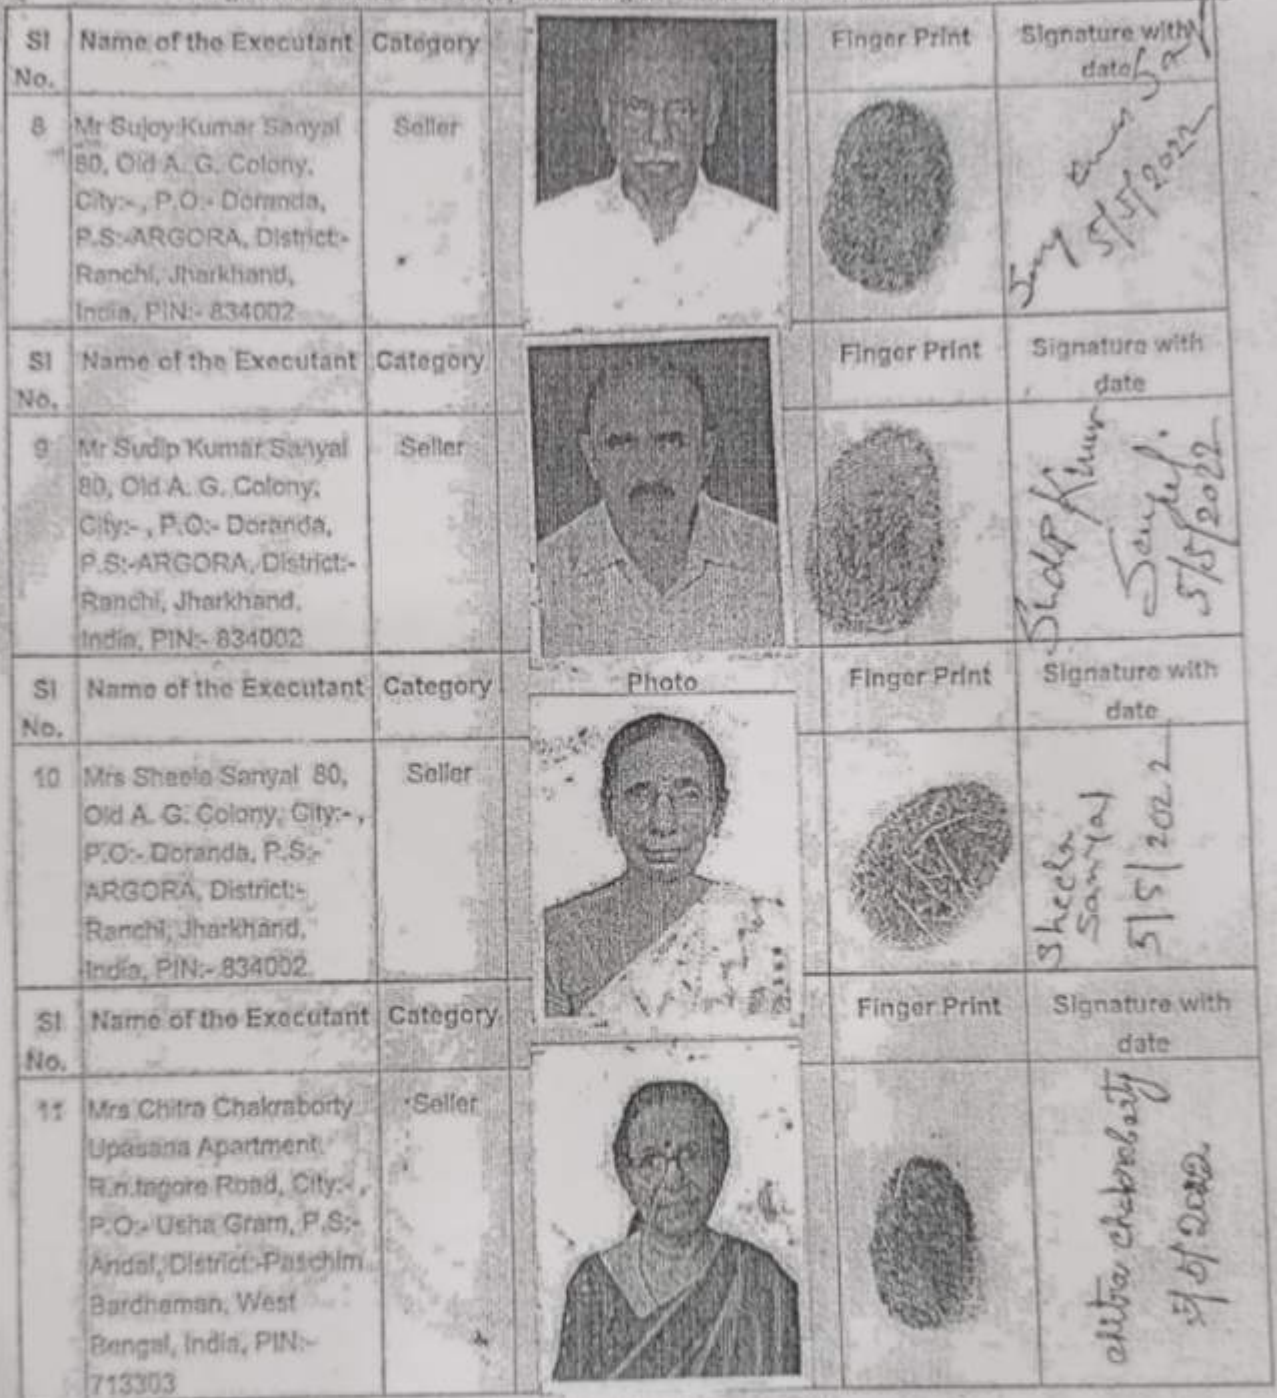 Sl No. Name of the Executant Category Finger Print Signature with date
8 Mr Sujoy Kumar Sanyal Seller
80, Old A. G. Colony,
City:- , P.O:- Doranda,
P.S:-ARGORA, District:-
Ranchi, Jharkhand,
India, PIN:- 834002
5/5/2022
Sl No. Name of the Executant Category Finger Print Signature with date
9 Mr Sudip Kumar Sanyal Seller
80, Old A. G. Colony,
City:- , P.O:- Doranda,
P.S:-ARGORA, District:-
Ranchi, Jharkhand,
India, PIN:- 834002
Sudip Kumar
Sanyal.
5/5/2022
Sl No. Name of the Executant Category Photo Finger Print Signature with date
10 Mrs Sheela Sanyal 80, Seller
Old A. G. Colony, City:- ,
P.O:- Doranda, P.S:-
ARGORA, District:-
Ranchi, Jharkhand,
India, PIN:- 834002
Sheela
Sanyal
5/5/2022
Sl No. Name of the Executant Category Finger Print Signature with date
11 Mrs Chitra Chakraborty Seller
Upasana Apartment,
R.n.tagore Road, City:- ,
P.O:- Usha Gram, P.S:-
Andal, District:-Paschim
Bardhaman, West
Bengal, India, PIN:-
713303
Chitra Chakraborty
5/5/2022